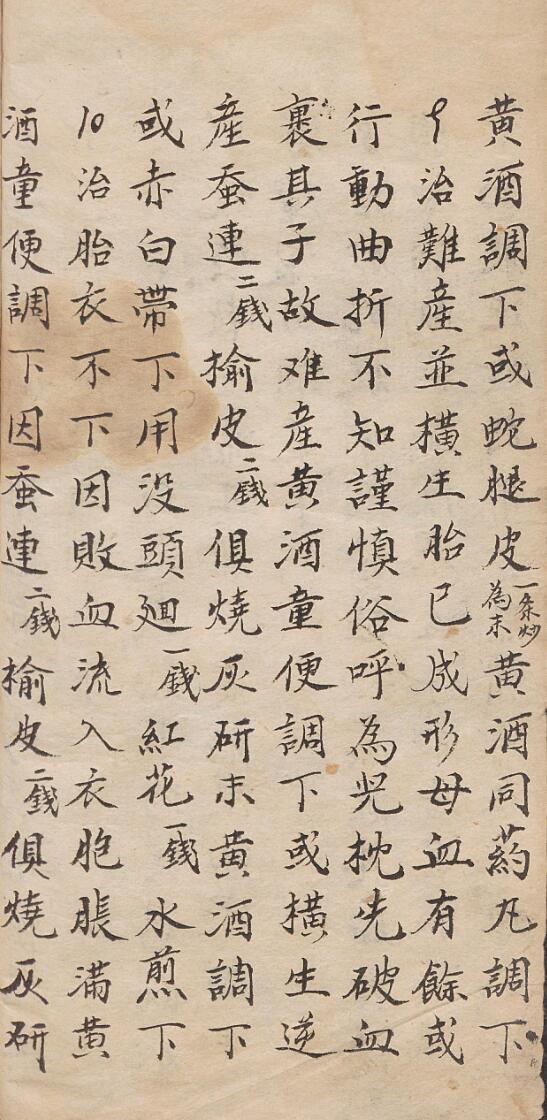 黄酒調下或蛇腿皮一条炒為末黄酒同药凡調下
9治難産並横生胎已成形母血有餘或
行動曲折不知謹慎俗呼為児枕先破血
裹其子故难産黄酒童便調下或横生逆
産蚕連二錢榆皮二錢俱燒灰研末黄酒調下
或赤白帶下用没頭廻一錢紅花一錢水煎下
10治胎衣不下因敗血流入衣胞脹满黄
酒童便調下因蚕連二錢榆皮二錢俱燒灰研